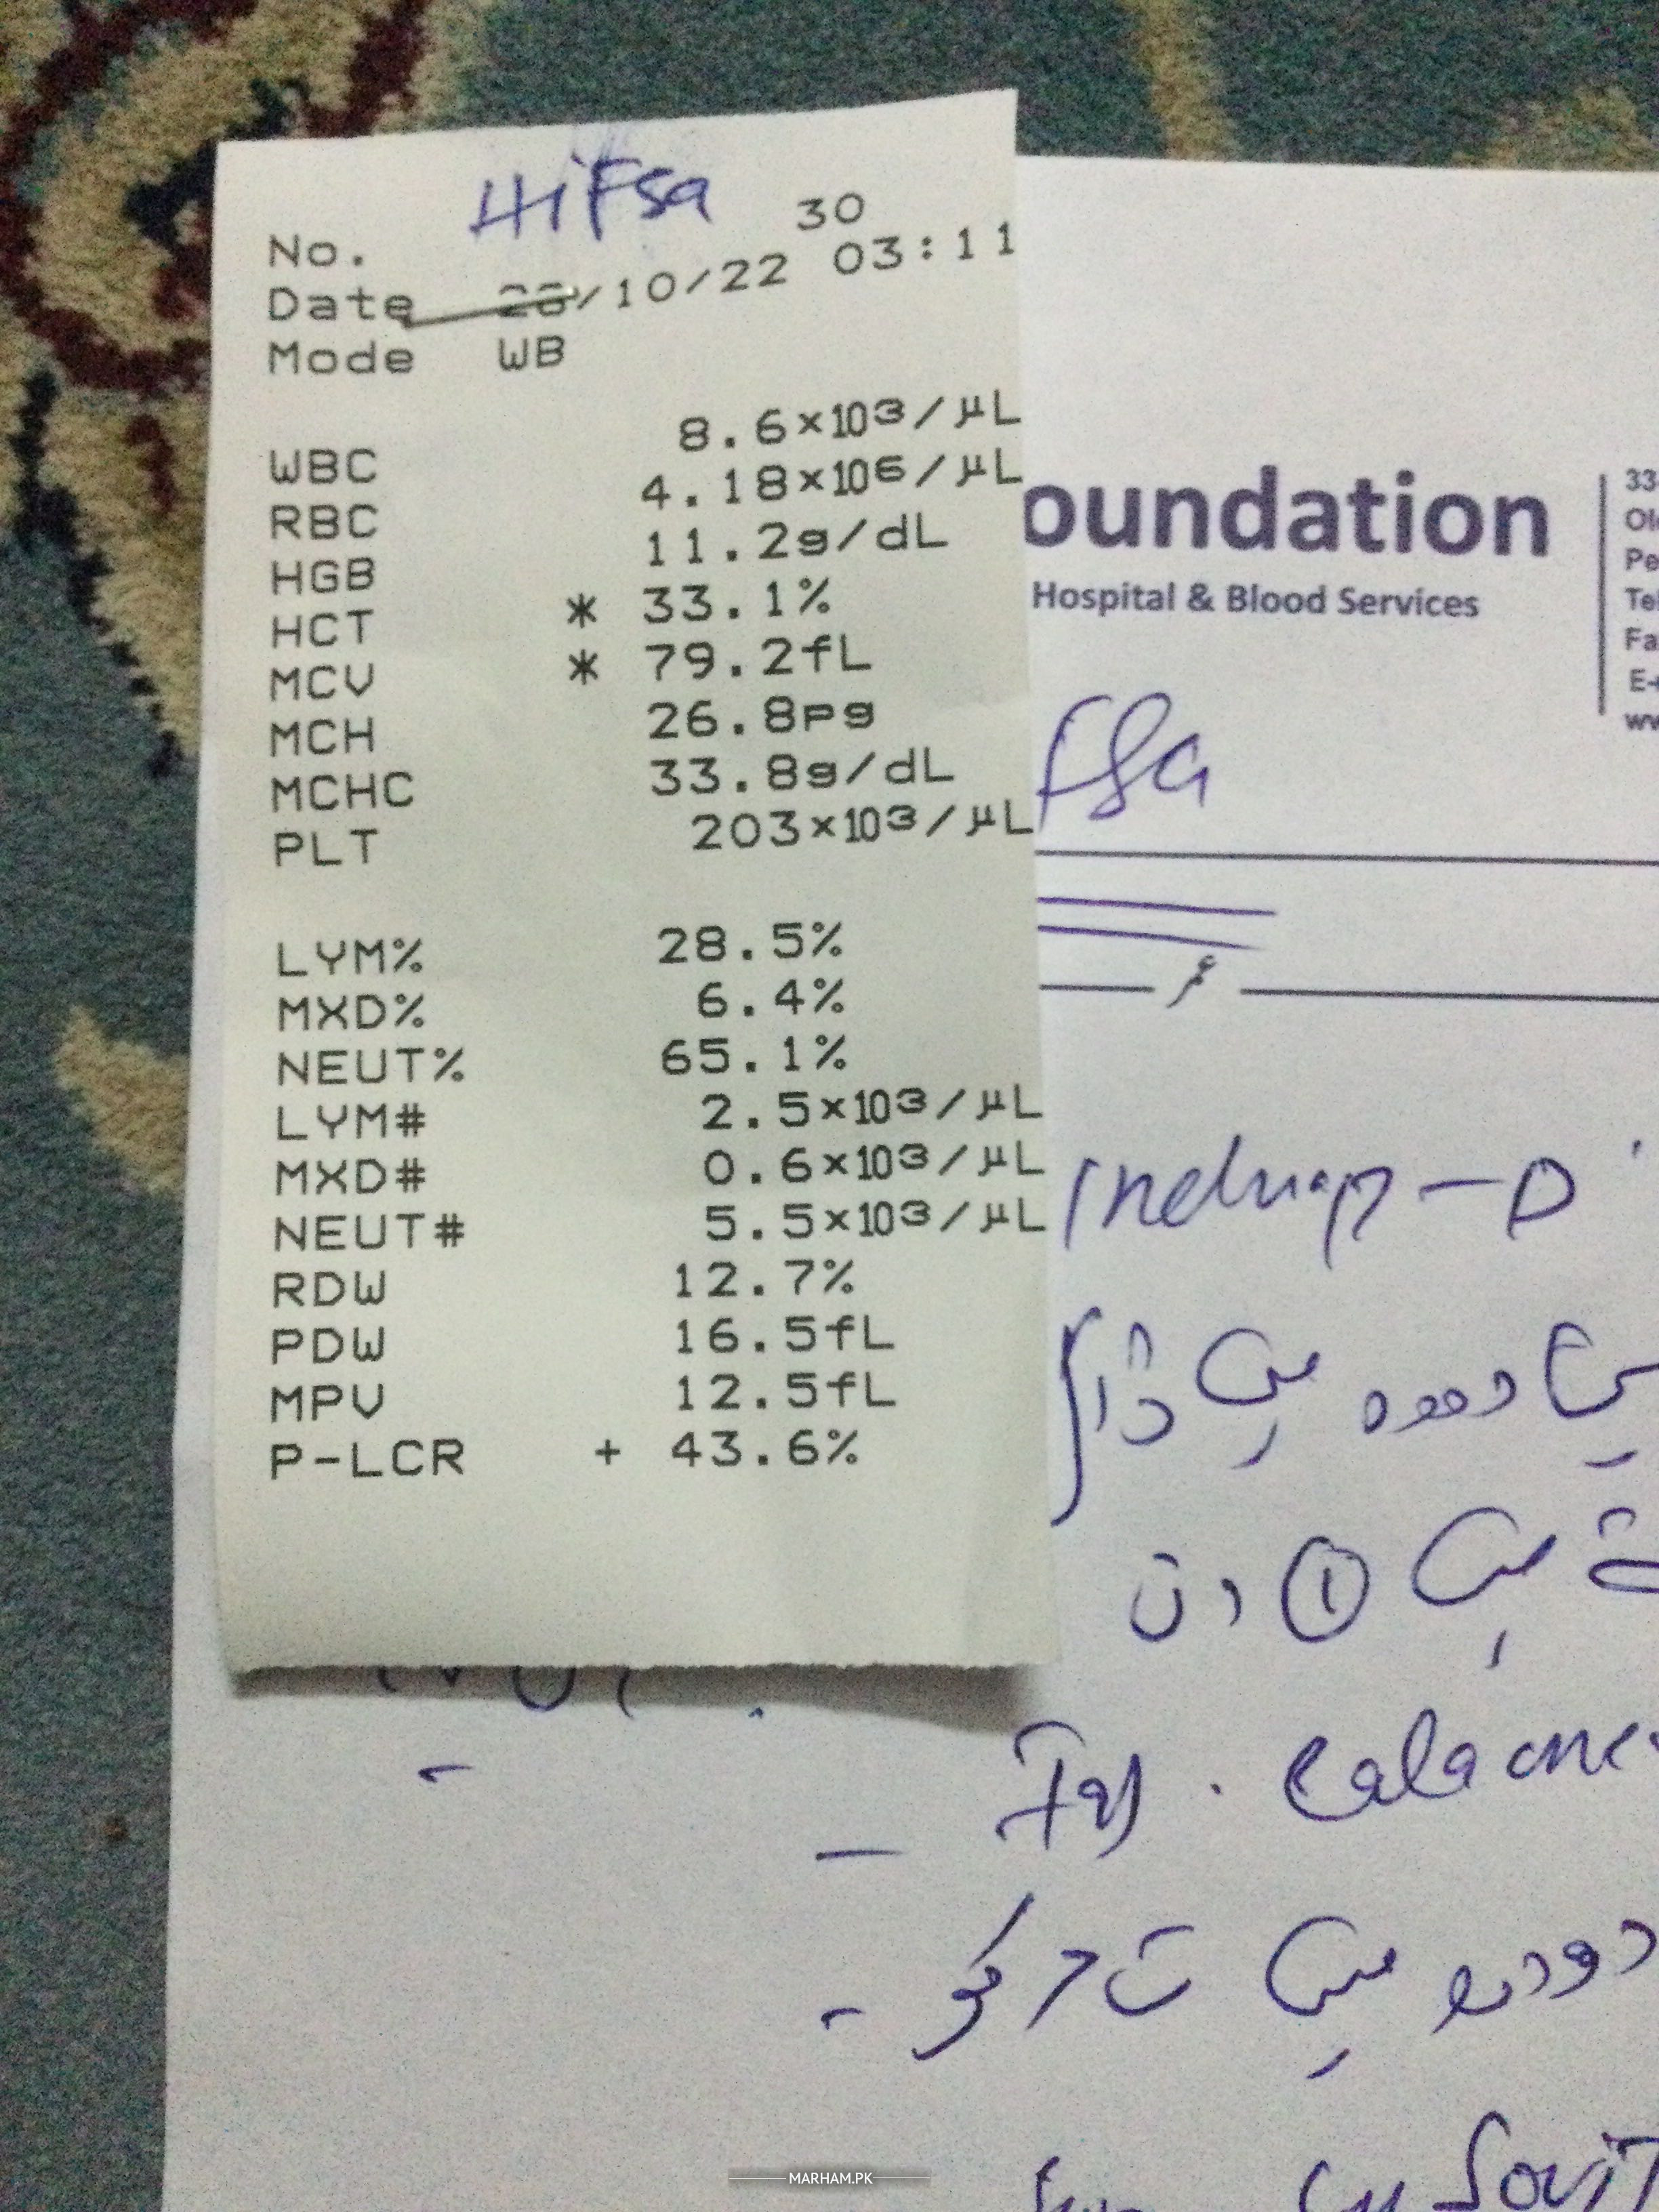 Hifsa
No. 30
Date 28/10/22 03:11
Mode WB
WBC 8.6×103/μL
RBC 4.18×106/μL
HGB 11.2g/dL
HCT * 33.1%
MCV * 79.2fL
MCH 26.8pg
MCHC 33.8g/dL
PLT 203×103/μL
LYM% 28.5%
MXD% 6.4%
NEUT% 65.1%
LYM# 2.5×103/μL
MXD# 0.6×103/μL
NEUT# 5.5×103/μL
RDW 12.7%
PDW 16.5fL
MPV 12.5fL
P-LCR + 43.6%
oundation
Hospital & Blood Services
33
Ol
Pe
Tel
Fa
E-
ww
fsa
عمر
Indrop-D
دودھ میں
میں ① دن
دودھ میں
MARHAM.PK